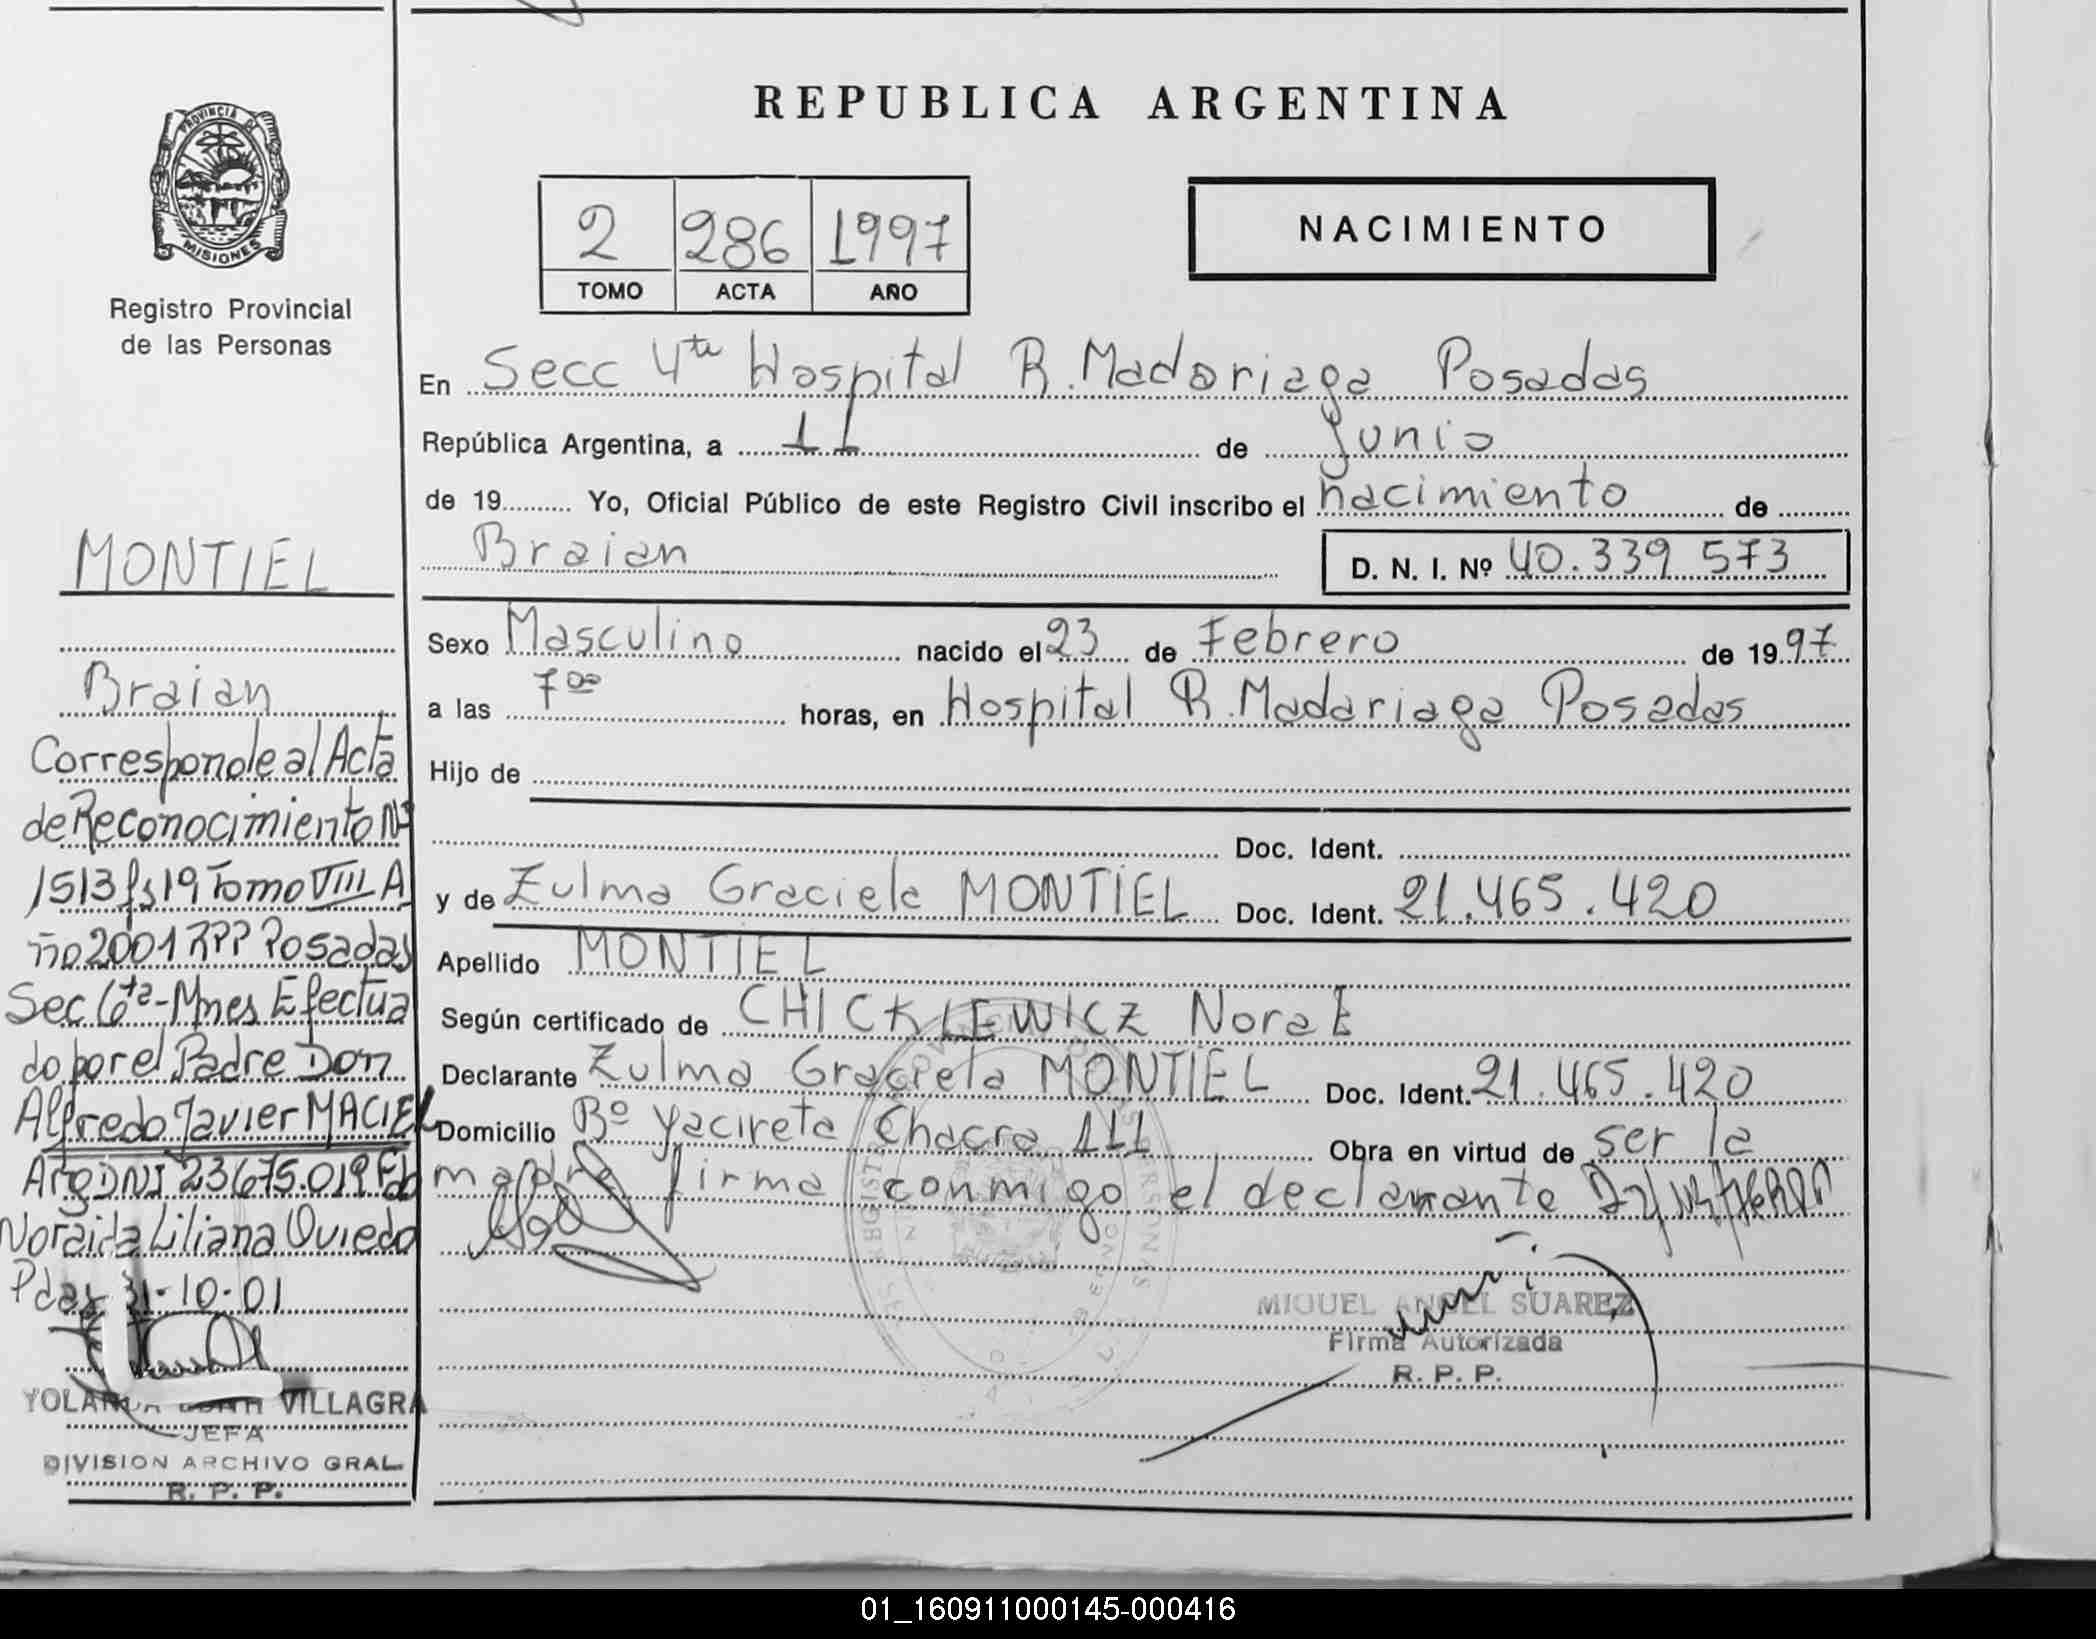 PROVINCIA DE
MISIONES
Registro Provincial
de las Personas
MONTIEL
Braian
Corresponde al Acta
de Reconocimiento Nº
1513 fs 19 Tomo VIII A
ño 2001 RPP Posadas
Sec 6ta - Mnes Efectua
do por el Padre Don
Alfredo Javier MACIEL
Arg DNI 23675.019 Fdo
Noraida Liliana Oviedo
Pdas 31-10-01
VILLAGRA
JEFA
DIVISION ARCHIVO GRAL.
R. P. P.
REPUBLICA ARGENTINA
2 286 1997
TOMO ACTA AÑO
NACIMIENTO
En Secc 4ta Hospital R. Madariaga Posadas
República Argentina, a 11 de Junio
de 19 Yo, Oficial Público de este Registro Civil inscribo el nacimiento de
Braian D. N. I. Nº 40.339 573
Sexo Masculino nacido el 23 de Febrero de 1997
a las 7 00 horas, en Hospital R. Madariaga Posadas
Hijo de
Doc. Ident.
y de Zulma Graciela MONTIEL Doc. Ident. 21.465.420
Apellido MONTIEL
Según certificado de CHICKLEWICZ Nora E
Declarante Zulma Graciela MONTIEL Doc. Ident. 21.465.420
Domicilio Bº Yacireta Chacra 111 Obra en virtud de ser la
madre firma conmigo el declarante
MIGUEL ANGEL SUAREZ
Firma Autorizada
R. P. P.
01_160911000145-000416